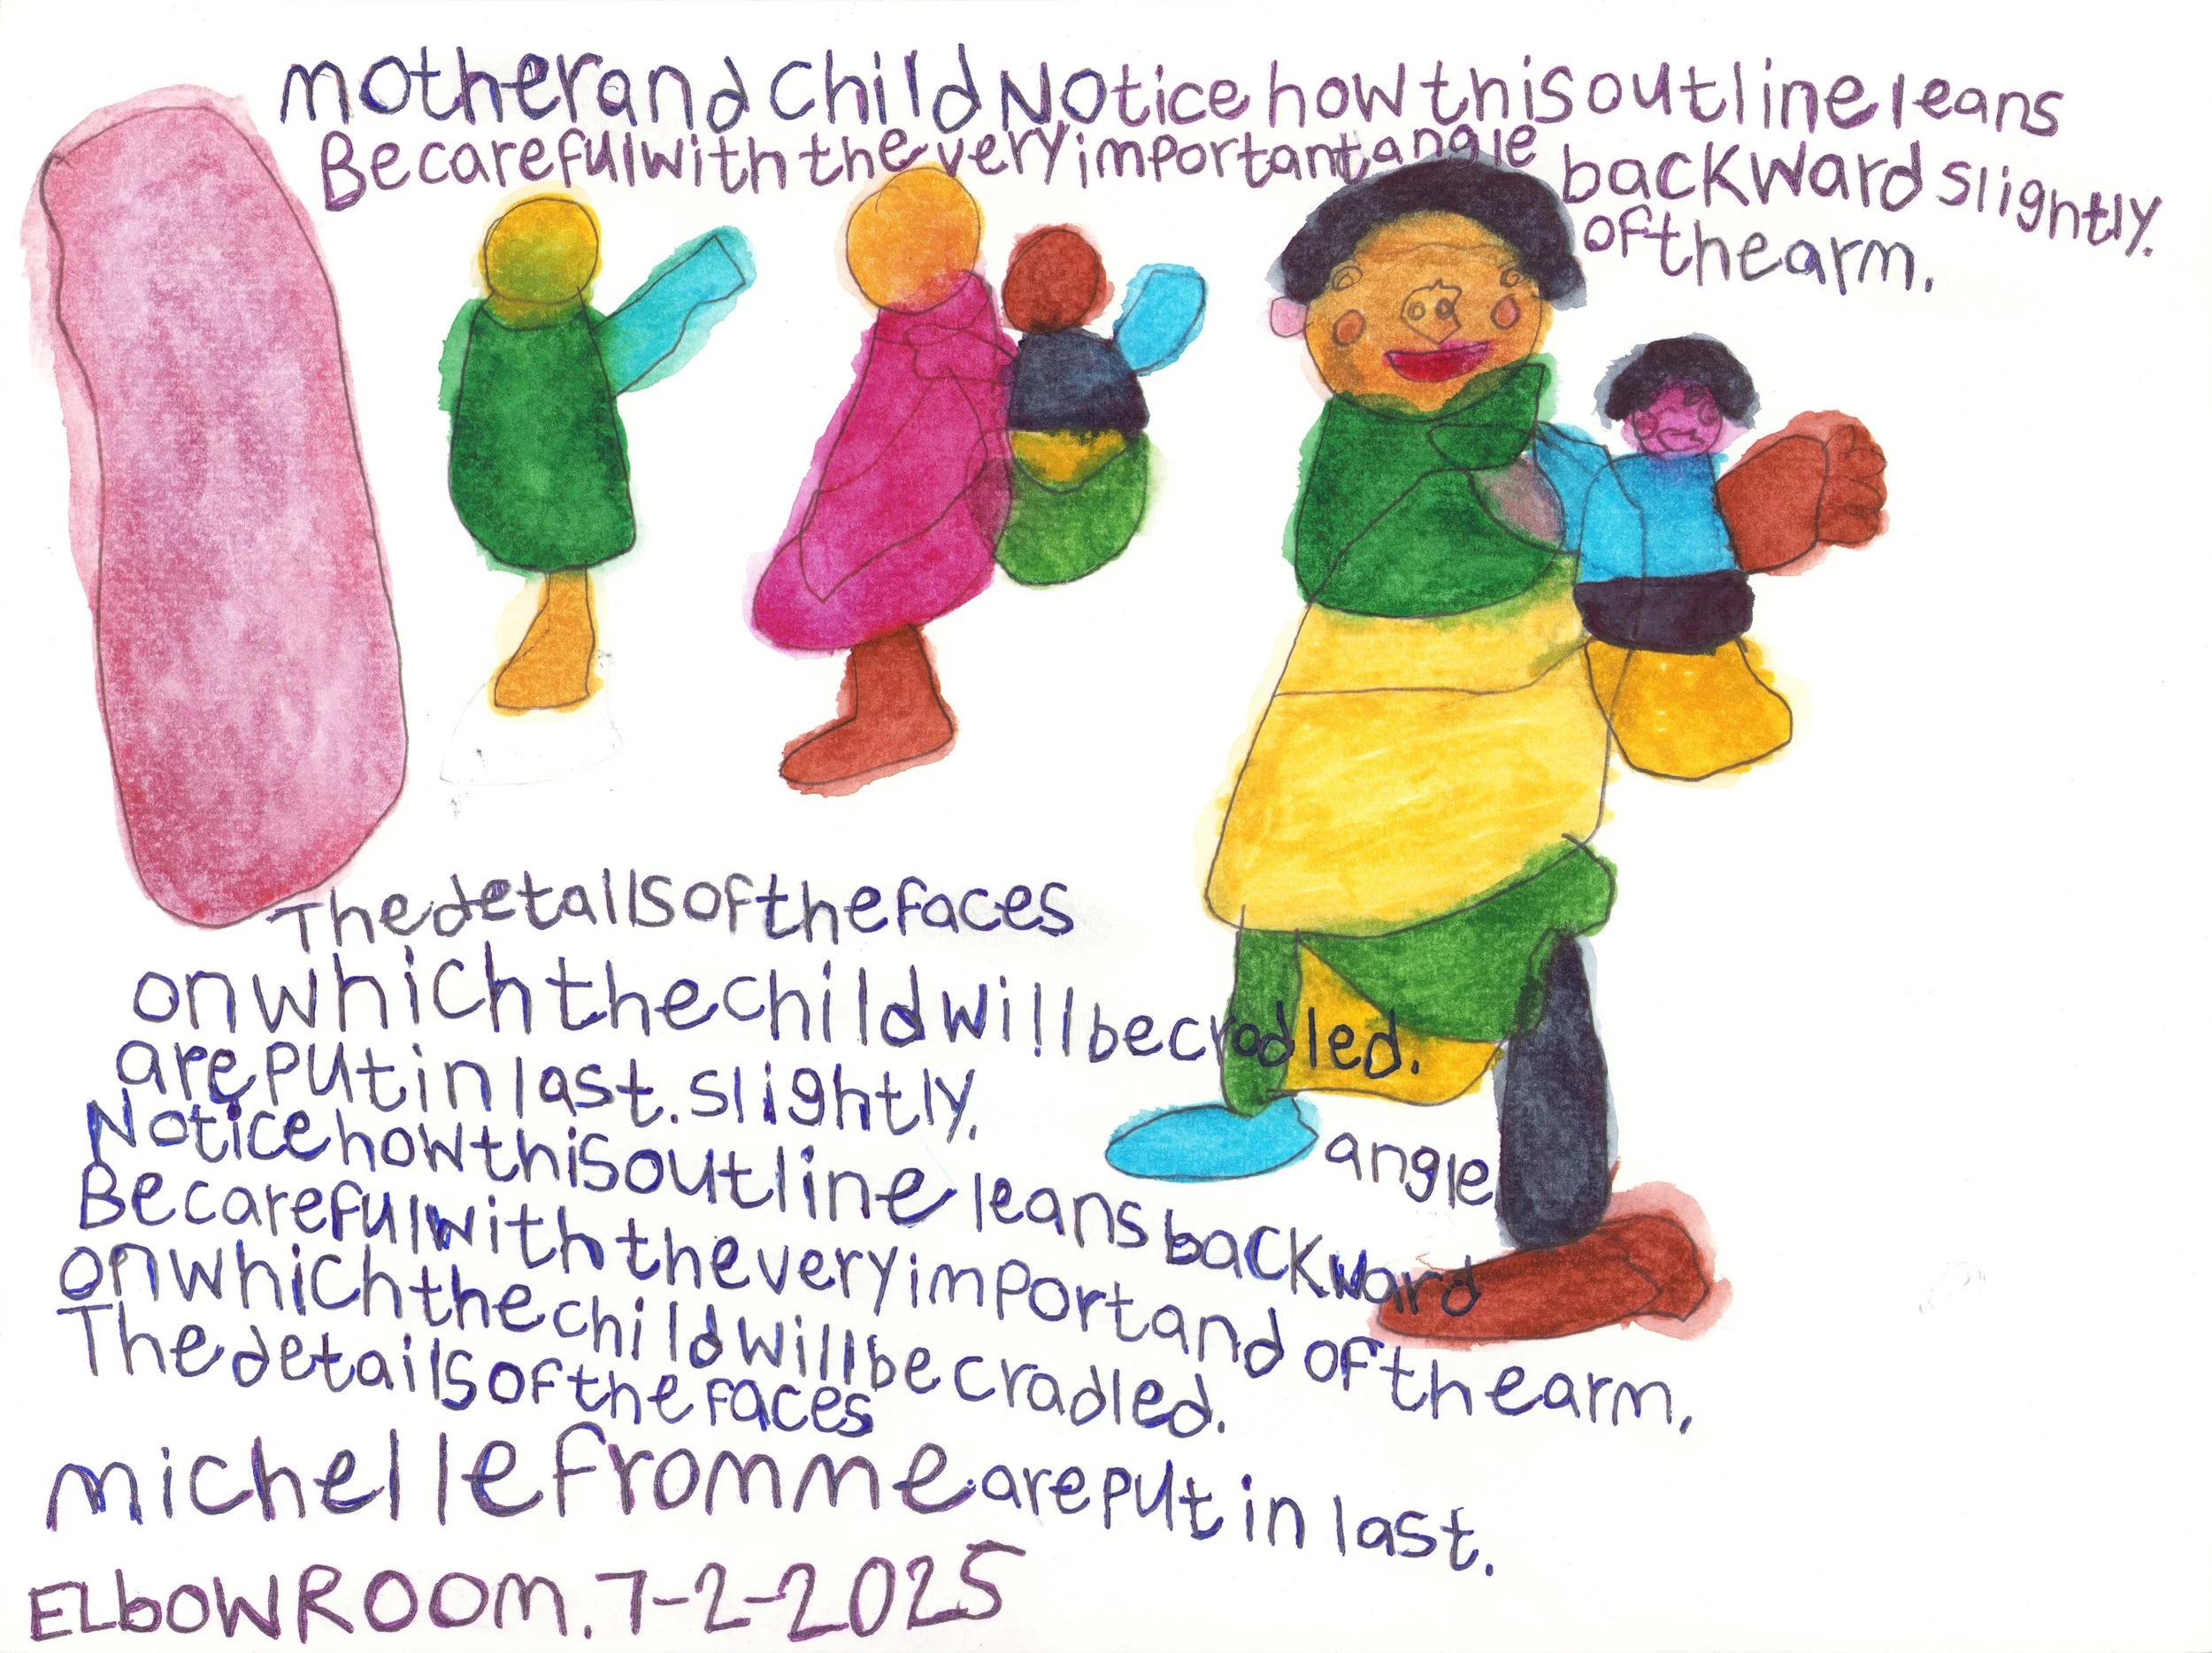 motherand Child Notice how this outline leans
Be careful with the very important angle backward slightly.
of the arm.
The details of the faces
on which the child will be cradled.
are put in last. slightly.
angle
Notice how this outline leans backward
Be careful with the very importand of the arm,
on which the child will be cradled.
The details of the faces
michelle fromme are put in last.
ELbOWROOM. 7-2-2025